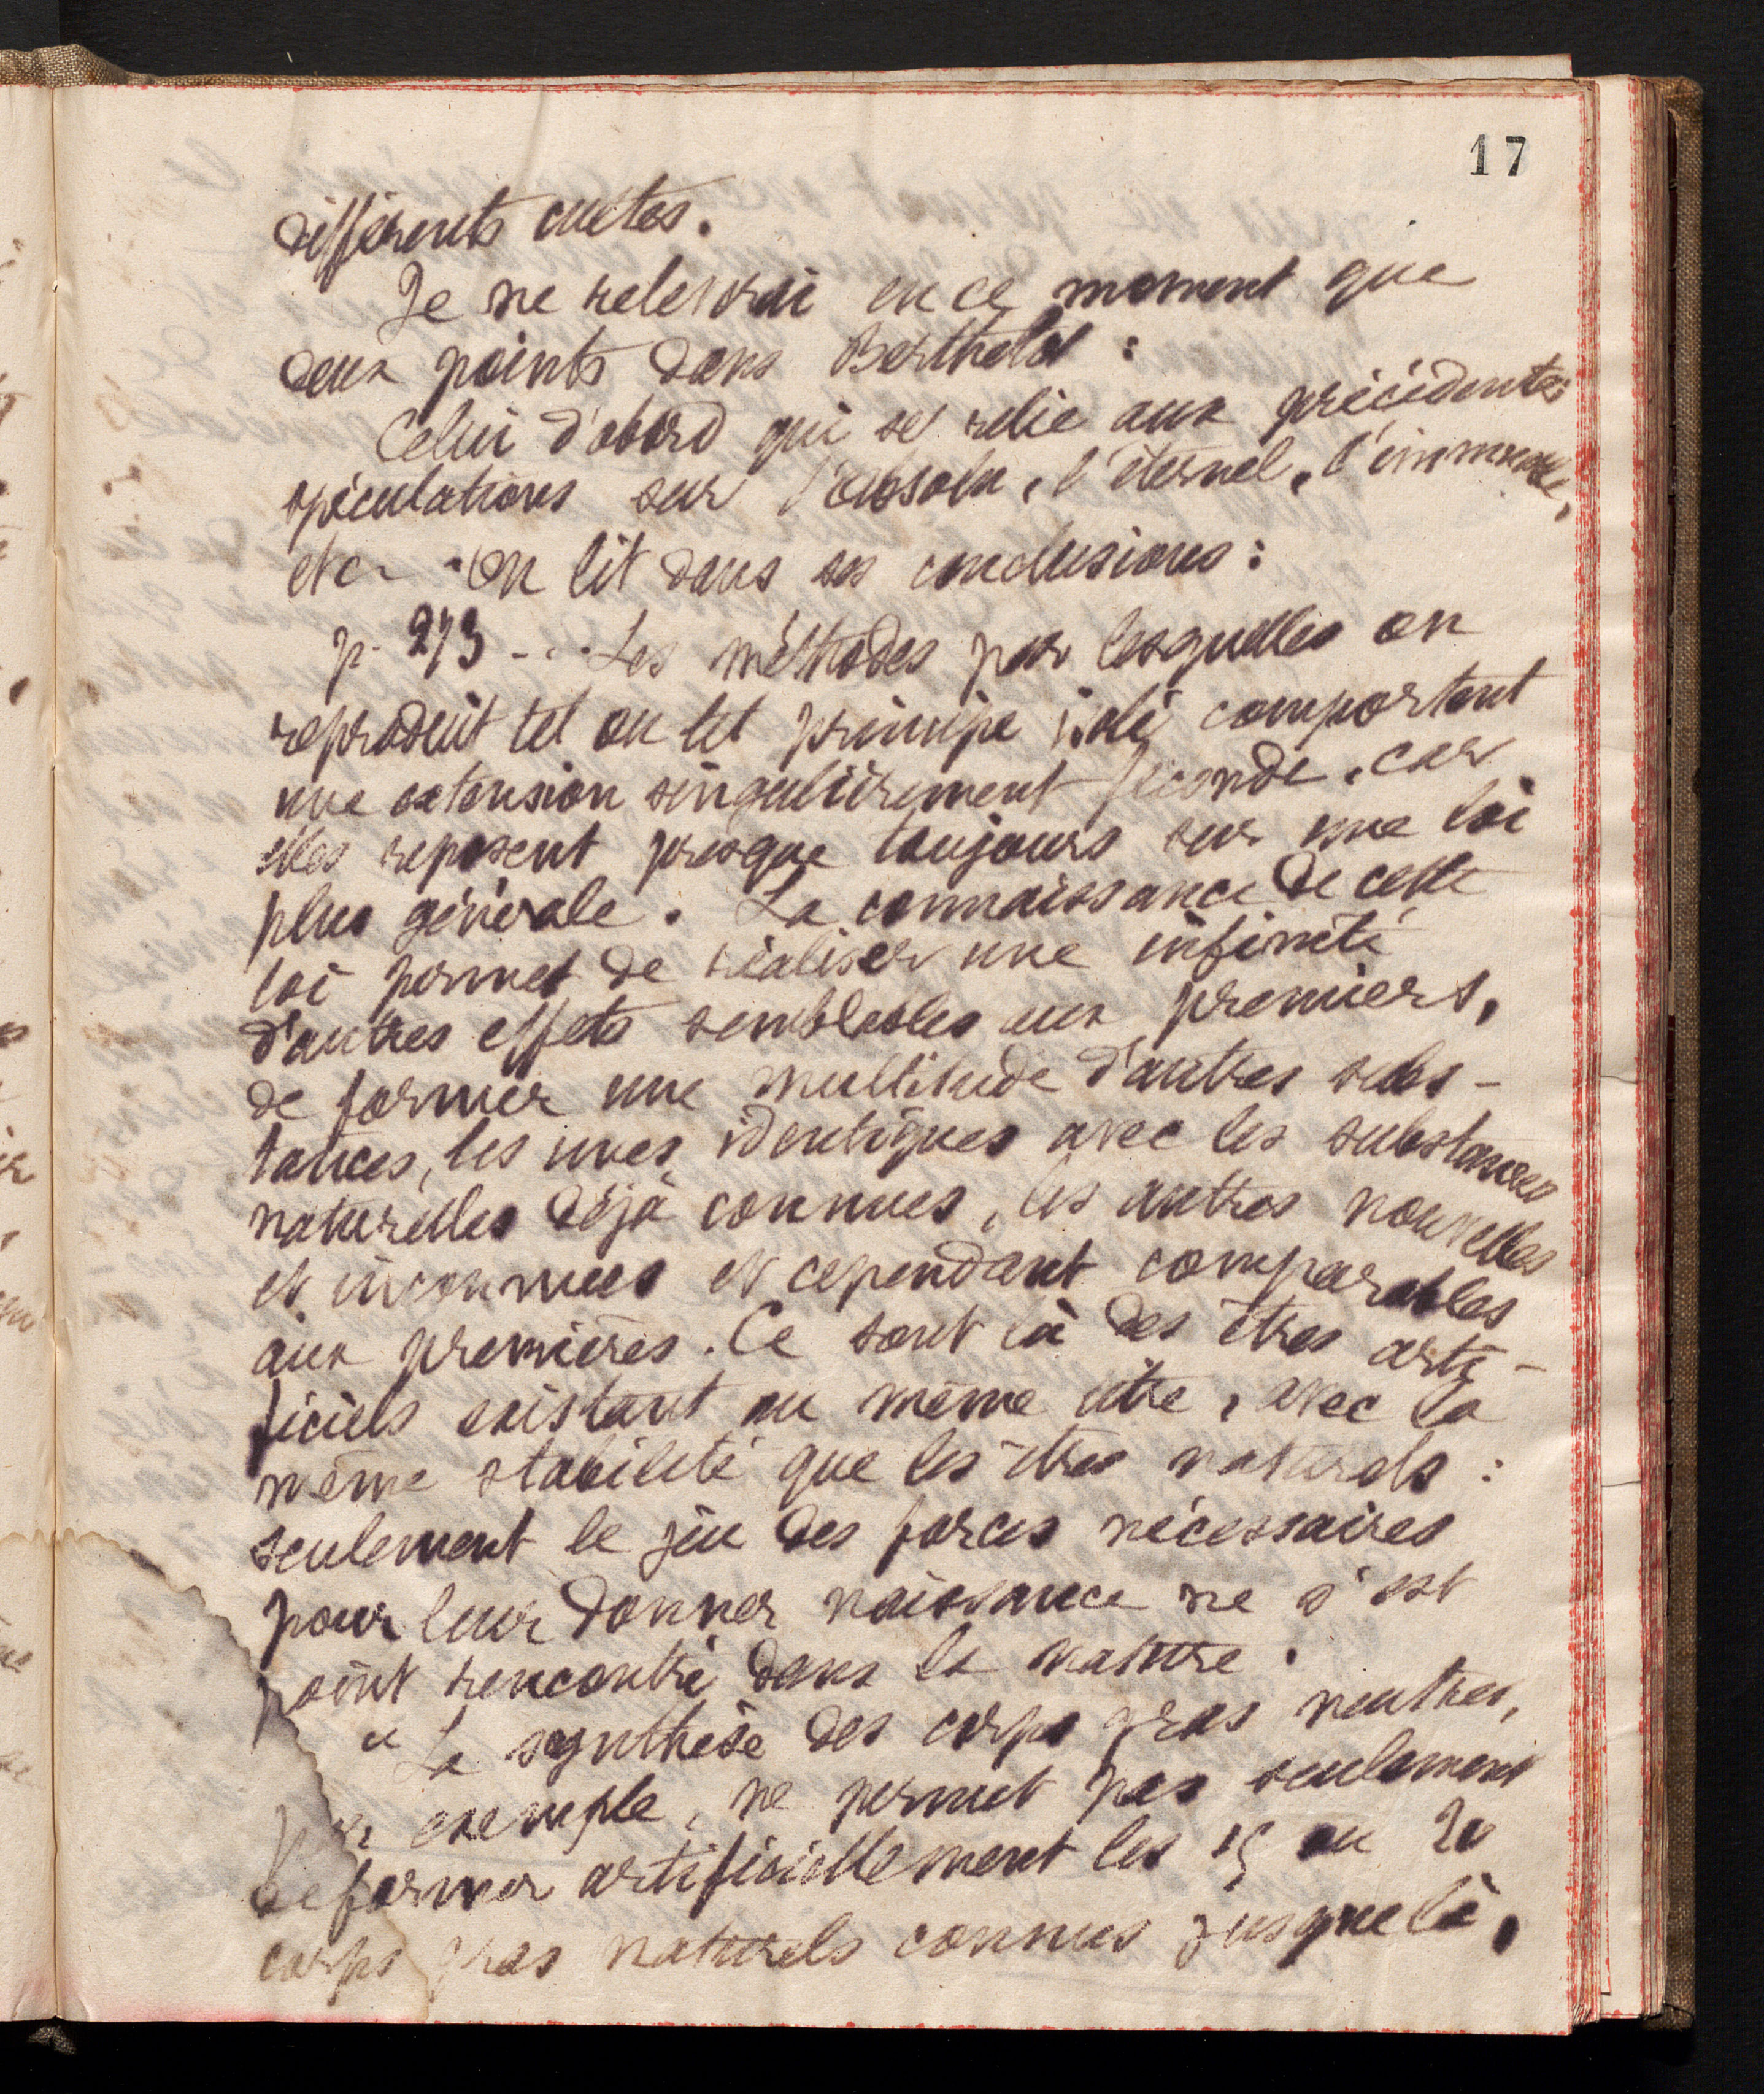 17
différents cultes.
Je ne releverai en ce moment que
deux points dans Berthelot :
Celui d'abord qui se relie aux précédentes
spéculations sur l'absolu, l'éternel, l'immuable,
etc. On lit dans ses conclusions :
p. 273 ... Les méthodes par lesquelles on
reproduit tel ou tel principe isolé comportent
une extension singulièrement féconde, car
elles reposent presque toujours sur une loi
plus générale. La connaissance de cette
loi permet de réaliser une infinité
d'autres effets semblables aux premiers,
de former une multitude d'autres subs-
tances, les unes identiques avec les substances
naturelles déjà connues, les autres nouvelles
et inconnues et cependant comparables
aux premières. Ce sont là des êtres arti-
ficiels existant au même titre, avec la
même stabilité que les êtres naturels :
seulement le jeu des forces nécessaires
pour leur donner naissance ne s'est
point rencontré dans la nature.
"La synthèse des corps gras neutres,
par exemple, ne permet pas seulement
de former artificiellement les 15 ou 20
corps gras naturels connus jusque là,